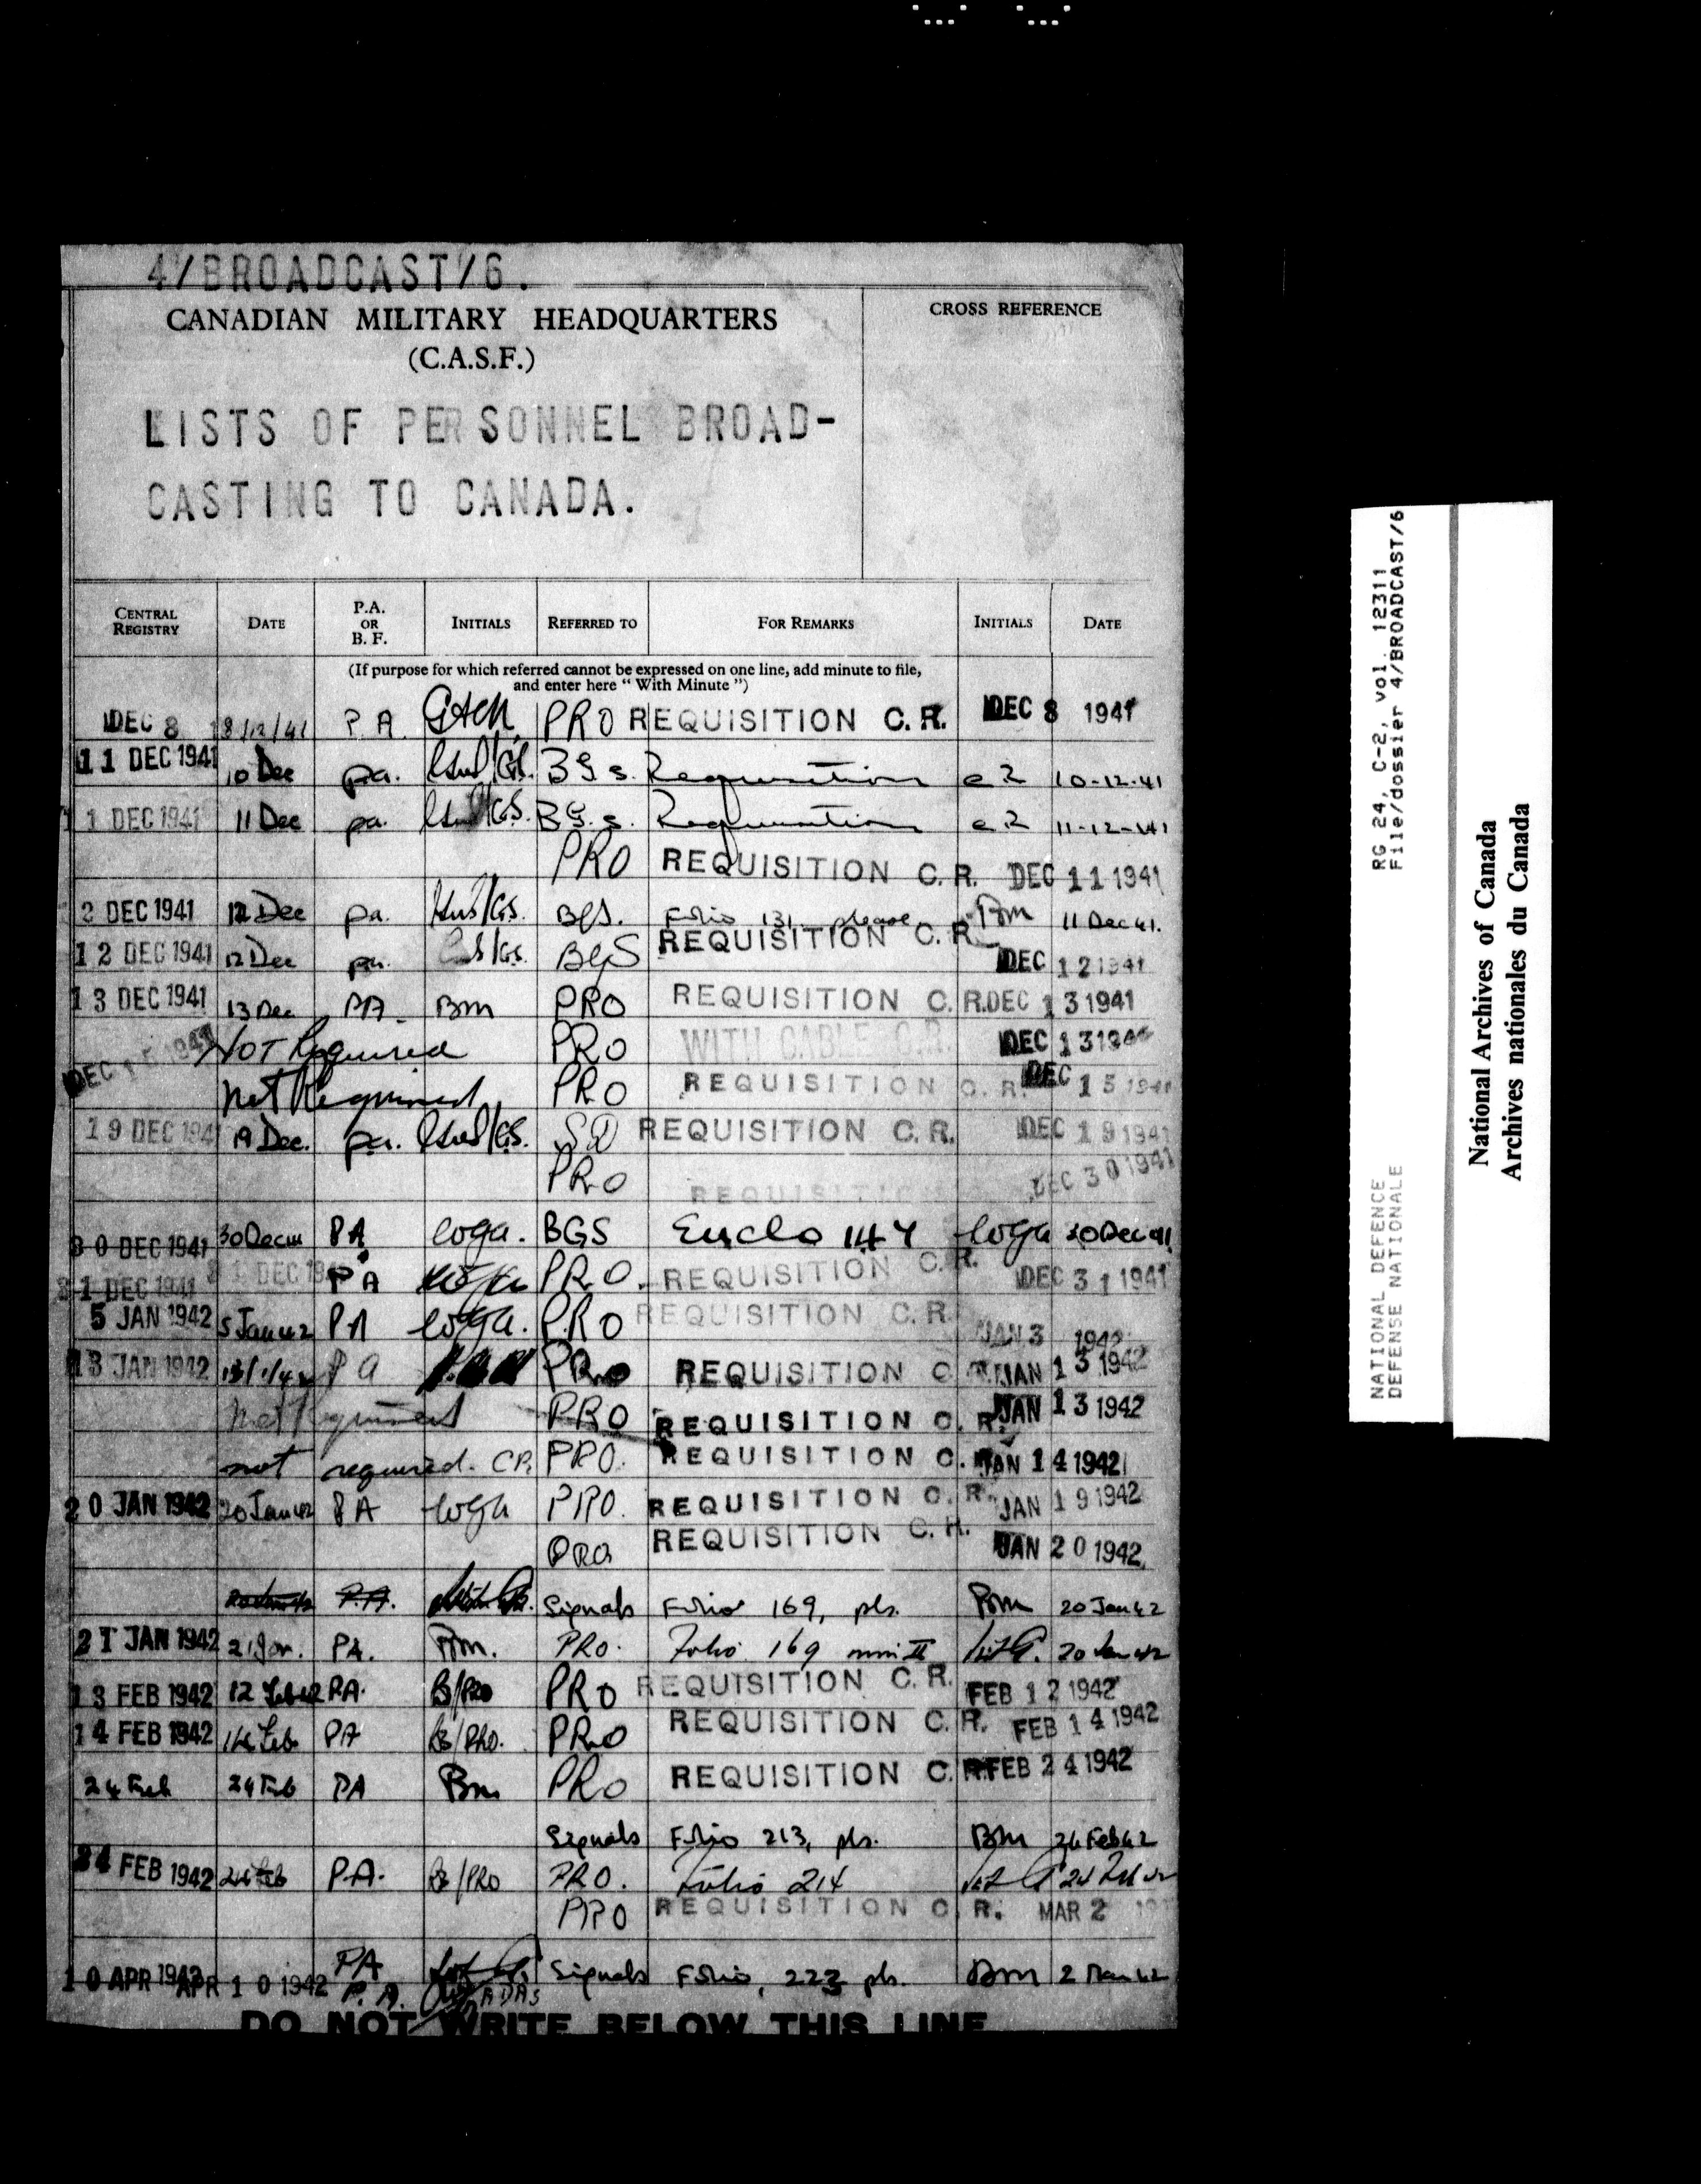 4/BROADCAST/6.
CANADIAN MILITARY HEADQUARTERS
(C.A.S.F.)
CROSS REFERENCE
LISTS OF PERSONNEL BROAD-
CASTING TO CANADA.
CENTRAL REGISTRY DATE P.A. OR B. F. INITIALS REFERRED TO FOR REMARKS INITIALS DATE
(If purpose for which referred cannot be expressed on one line, add minute to file,
and enter here "With Minute")
DEC 8 8/12/41 P A. PRO REQUISITION C.R. DEC 8 1941
11 DEC 1941 10 Dec pa. BGS. Requisition 10-12-41
1 DEC 1941 11 Dec pa. BGS. Requisition 11-12-41
PRO REQUISITION C.R. DEC 11 1941
2 DEC 1941 12 Dec pa. BGS. Folio 131 please Bm 11 Dec 41.
12 DEC 1941 12 Dec pa. BGS REQUISITION C.R. DEC 12 1941
13 DEC 1941 13 Dec PA. Bm PRO REQUISITION C.R. DEC 13 1941
DEC 15 1941 NOT Required PRO WITH CABLE C.R. DEC 13 194
Not Required PRO REQUISITION C.R. DEC 15 1941
19 DEC 194 19 Dec. pa. SD REQUISITION C.R. DEC 19 1941
PRO REQUISITION DEC 30 1941
30 DEC 1941 30 Dec PA BGS Enclo 147 30 Dec 41
31 DEC 1941 31 DEC 19 PA PRO. REQUISITION C.R. DEC 31 1941
5 JAN 1942 5 Jan 42 PA PRO REQUISITION C.R. JAN 3 1942
13 JAN 1942 13/1/42 PA PRO REQUISITION C.R. JAN 13 1942
Not Required PRO REQUISITION C.R. JAN 13 1942
not required. CR. PRO. REQUISITION C. JAN 14 1942
20 JAN 1942 20 Jan 42 PA PRO. REQUISITION C.R. JAN 19 1942
PRO REQUISITION C.R. JAN 20 1942
P.A. Signals Folio 169, pls. Bm 20 Jan 42
21 JAN 1942 21 Jan. PA. Bm. PRO. Folio 169 min II 20 Jan 42
13 FEB 1942 12 Feb 42 PA. B/PRO PRO REQUISITION C.R. FEB 12 1942
14 FEB 1942 14 Feb PA B/PRO. PRO REQUISITION C.R. FEB 14 1942
24 Feb 24 Feb PA Bm PRO REQUISITION C.R. FEB 24 1942
Signals Folio 213, pls. Bm 24 Feb 42
24 FEB 1942 24 Feb P.A. B/PRO PRO. Folio 214 24 Feb 42
PRO REQUISITION C.R. MAR 2
PA Signals Folio, 223 pls. Bm 2 Mar 42
10 APR 1942 APR 10 1942 P.A. ADAS
DO NOT WRITE BELOW THIS LINE
NATIONAL DEFENCE RG 24, C-2, vol. 12311
DEFENSE NATIONALE File/dossier 4/BROADCAST/6
National Archives of Canada
Archives nationales du Canada